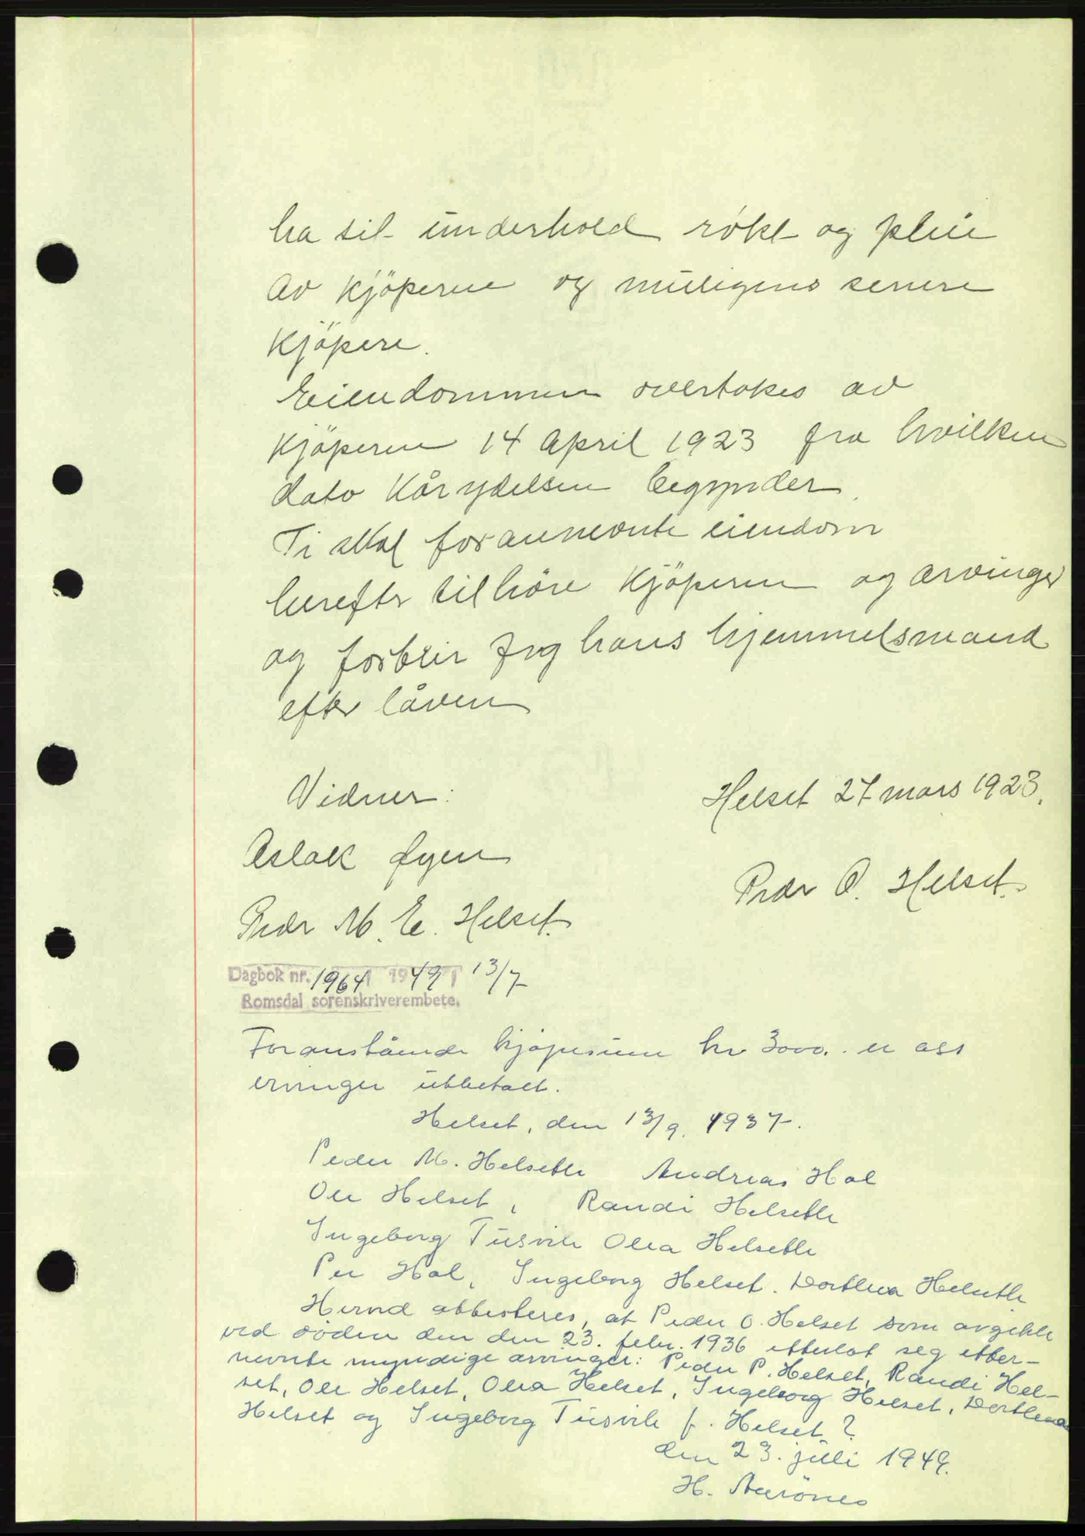 ha til underhold røkt og pleie
av kjöperne og muligens senere
kjöpere.
Eiendommen overtakes av
kjöperen 14 April 1923 fra hvilken
dato Kårydelsen begynder.
Ti skal forannevnte eiendom
herefter tilhöre kjöperen og arvinger
og forblir Jeg hans hjemmelsmand
efter låven
Vidner:
Helset 27 mars 1923.
Aslak Øyen
Peder O. Helset.
Peder M. E. Helset.
Dagbok nr. 1964 1949 13/7
Romsdal sorenskriverembete.
Foranstående kjøpesum kr 3000.- er oss
arvinger utbetalt.
Helset, den 13/9. 1937.
Peder M. Helseth Andreas Hol
Ole Helset, Randi Helseth
Ingeborg Tusvik Olea Helseth
Per Hol, Ingeborg Helset. Dorthea Helseth
Herved attesteres, at Peder O. Helset som avgikk
ved döden den den 23. febr. 1936 etterlot seg etter-
nevnte myndige arvinger: Peder P. Helset, Randi Hel-
set, Ole Helset, Olea Helset, Ingeborg Helset, Dorthea
Helset og Ingeborg Tusvik f. Helset?
den 23. juli 1949.
H. Aarönes